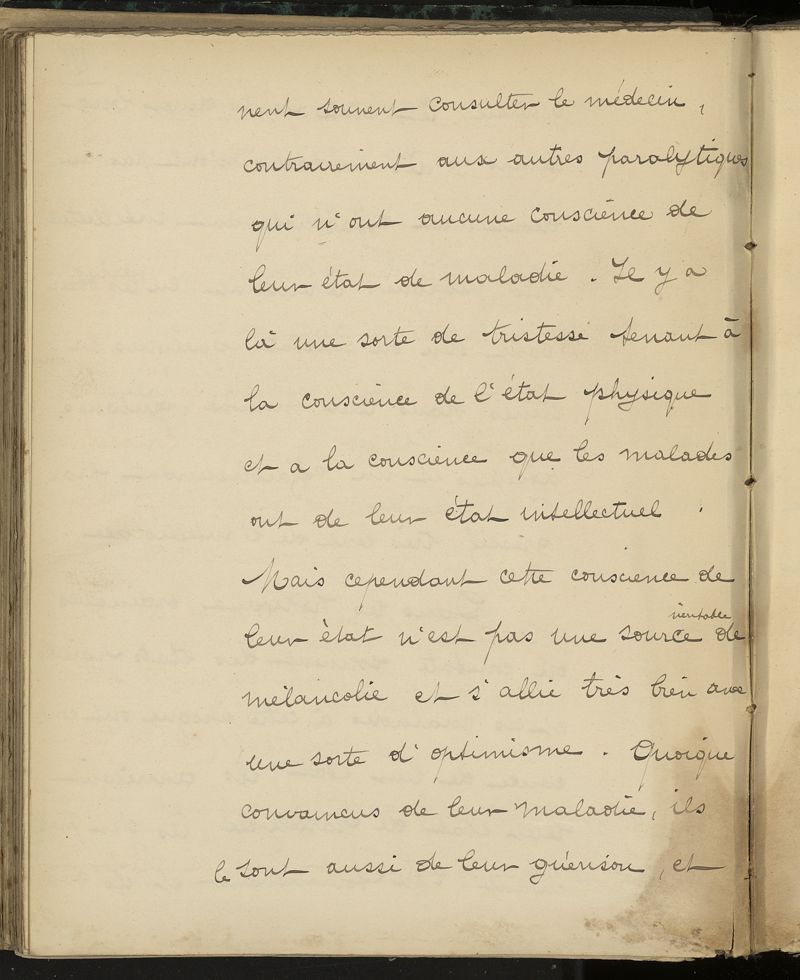 nent souvent consulter le médecin,
contrairement aux autres paralytiques
qui n'ont aucune conscience de
leur état de maladie. Il y a
là une sorte de tristesse tenant à
la conscience de l'état physique
et a la conscience que les malades
ont de leur état intellectuel.
Mais cependant cette conscience de
leur état n'est pas une source véritable de
mélancolie et s'allie très bien avec
une sorte d'optimisme. Quoique
convaincus de leur maladie, ils
le sont aussi de leur guérison, et